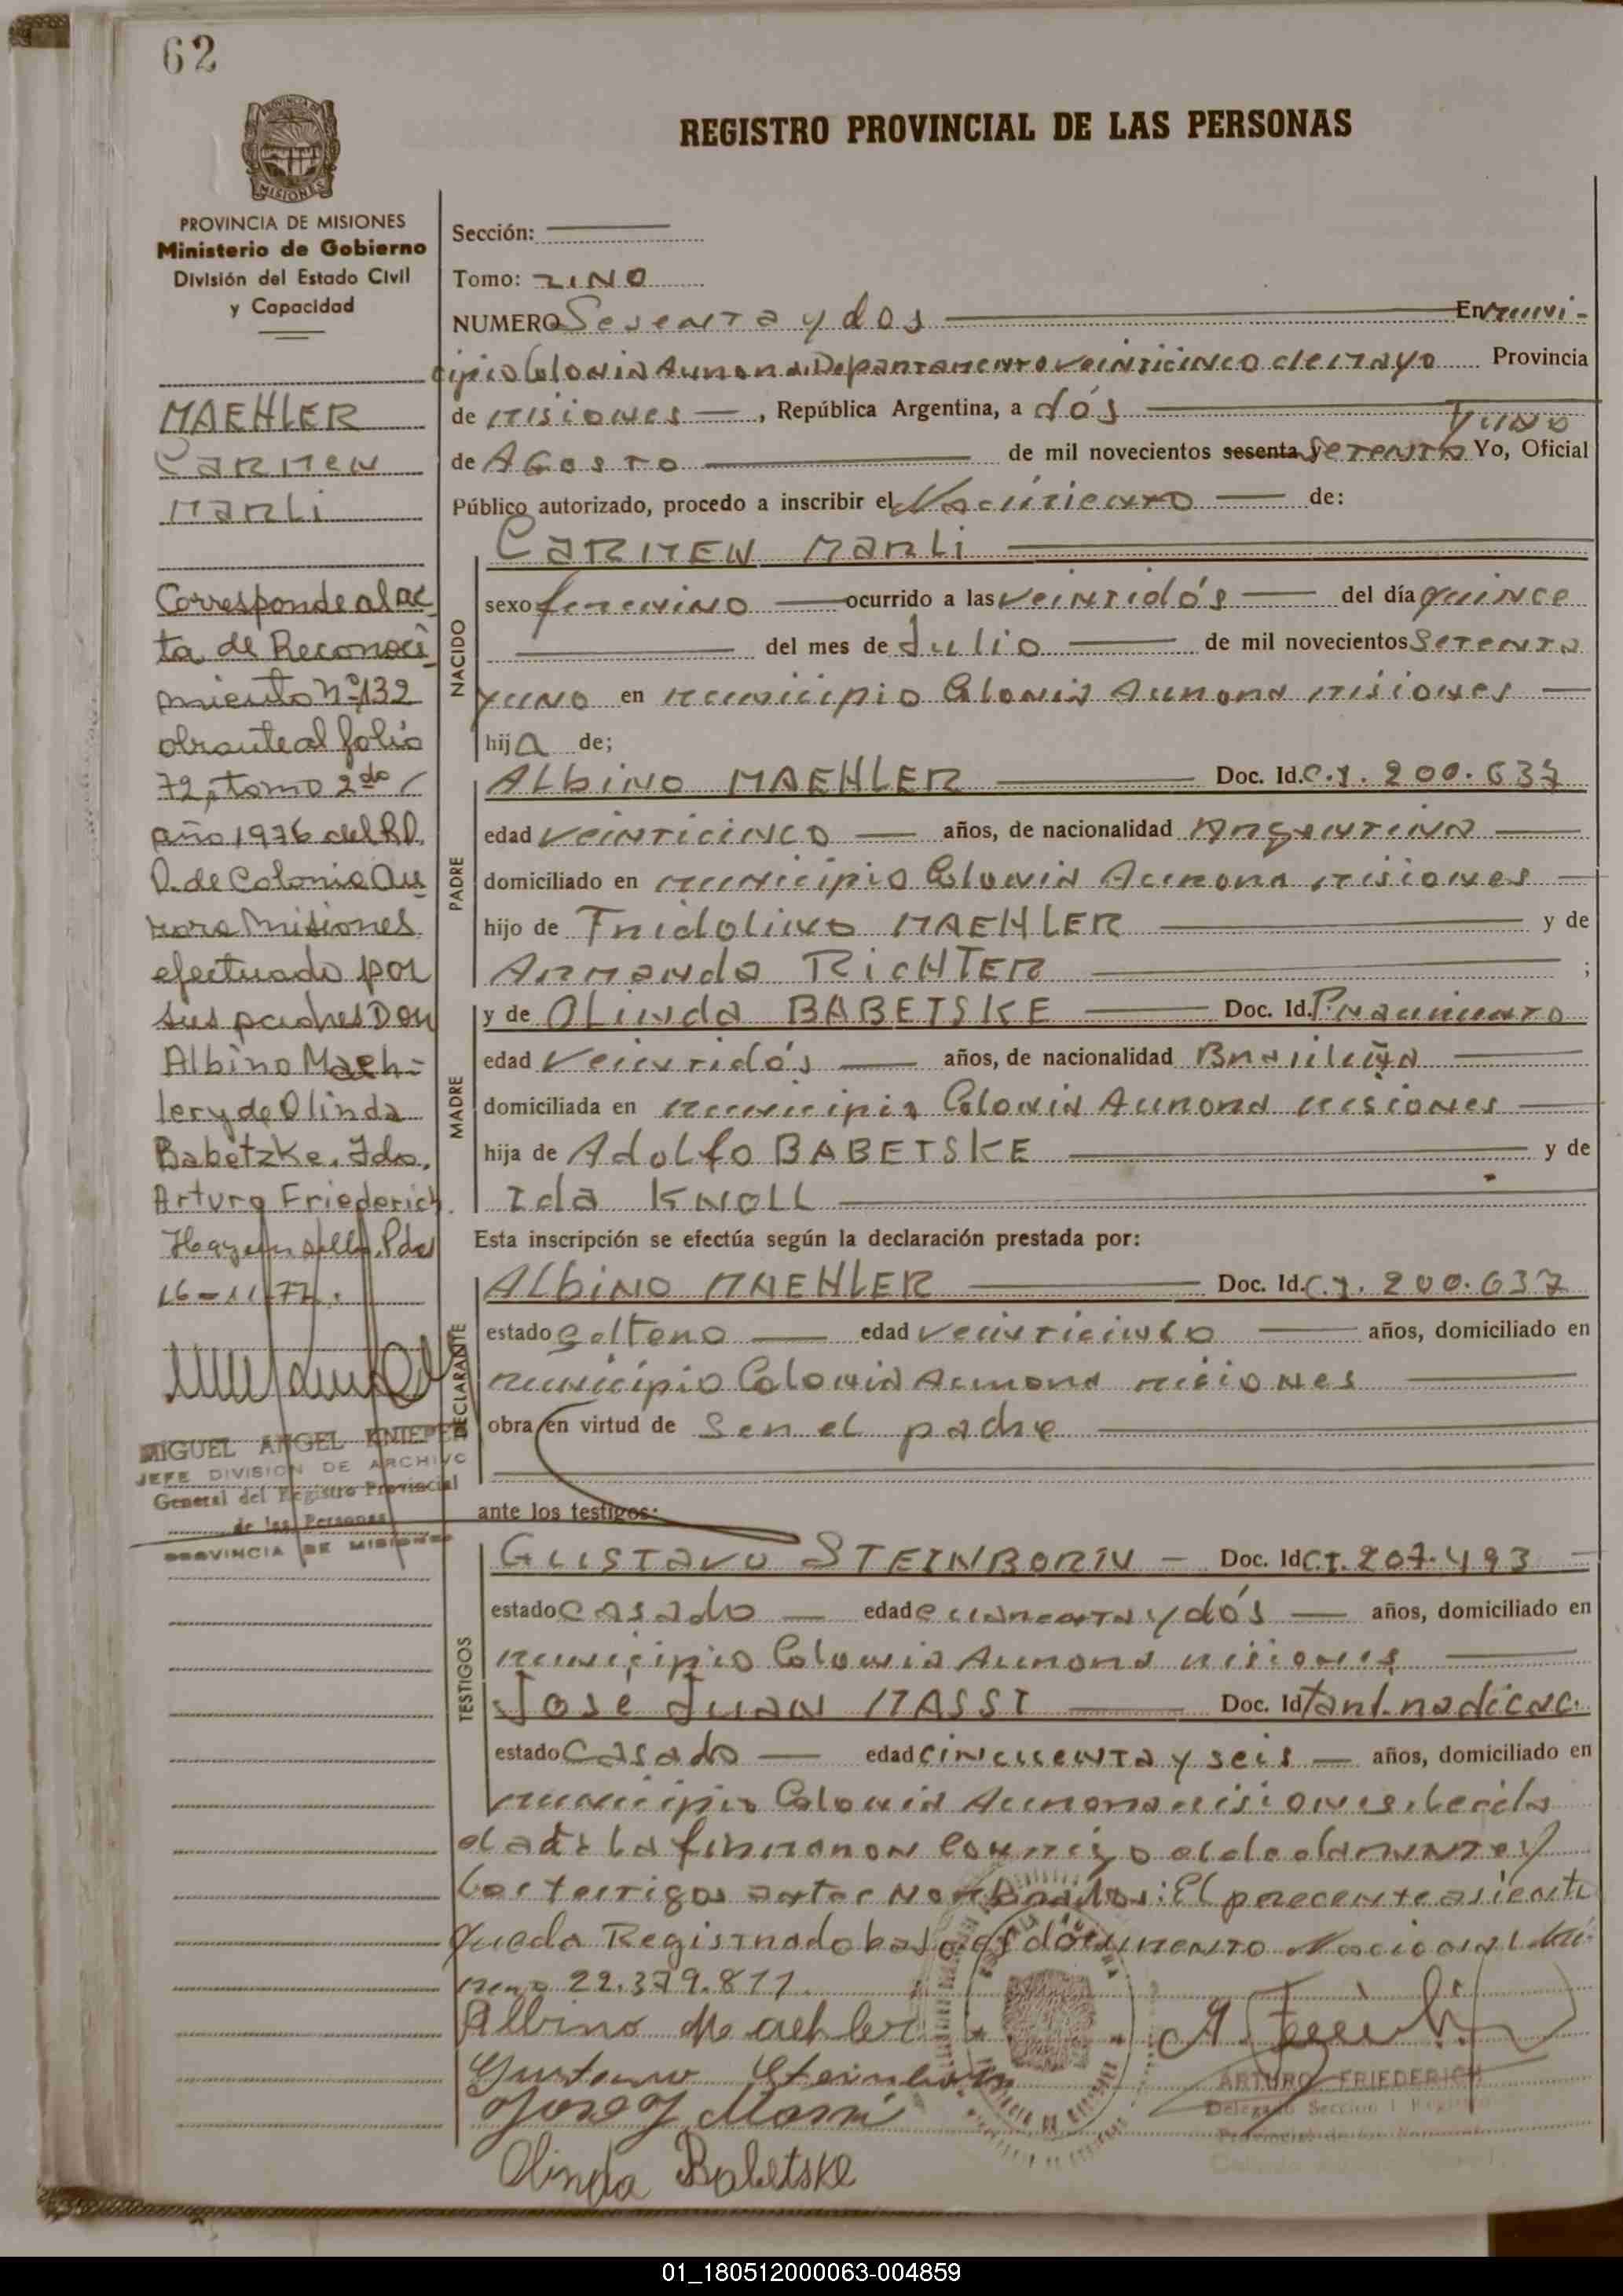 62
PROVINCIA DE MISIONES
REGISTRO PROVINCIAL DE LAS PERSONAS
PROVINCIA DE MISIONES
Ministerio de Gobierno
División del Estado Civil
y Capacidad
MAEHLER
CARMEN
MARLI
Corresponde al ac
ta de Reconoci
miento Nº 132
obrante al folio
72, tomo 2do
año 1976 del R.P.
D. de Colonia Au
rora Misiones
efectuado por
sus padres Don
Albino Maeh-
ler y de Olinda
Babetzke. Fdo.
Arturo Friederich.
Hay un sello. Pdas
16-11-77.
MIGUEL ANGEL KNIEPER
JEFE DIVISION DE ARCHIVO
General del Registro Provincial
de las Personas
PROVINCIA DE MISIONES
Sección:
Tomo: UNO
NUMERO Sesenta y dos En Muni-
cipio Colonia Aurora, Departamento veinticinco de Mayo Provincia
de Misiones, República Argentina, a dós
de Agosto de mil novecientos sesenta y setenta y uno Yo, Oficial
Público autorizado, procedo a inscribir el Nacimiento de:
NACIDO
CARMEN MARLi
sexo femenino ocurrido a las veintidós del día quince
del mes de Julio de mil novecientos Setenta
y uno en municipio Colonia Aurora Misiones
hija de;
PADRE
Albino MAEHLER Doc. Id. C.I. 200.637
edad veinticinco años, de nacionalidad Argentina
domiciliado en municipio Colonia Aurora Misiones
hijo de Fridolino MAEHLER y de
Armanda RICHTER ;
MADRE
y de OLinda BABETSKE Doc. Id. P. nacimiento
edad Veintidós años, de nacionalidad Brasileña
domiciliada en municipio Colonia Aurora misiones
hija de Adolfo BABETSKE y de
Ida KNOLL
Esta inscripción se efectúa según la declaración prestada por:
DECLARANTE
Albino MAEHLER Doc. Id. C.I. 200.637
estado Soltero edad veinticinco años, domiciliado en
municipio Colonia Aurora misiones
obra en virtud de Ser el padre
ante los testigos:
TESTIGOS
GUSTAVO STEINBORN Doc. Id C.I. 207.493
estado casado edad cincuenta y dós años, domiciliado en
municipio Colonia Aurora misiones
José Juan MASSI Doc. Id Tarj. radicac.
estado Casado edad cincuenta y seis años, domiciliado en
municipio Colonia Aurora misiones. Leida
el acta la firmaron conmigo el declarante y
los testigos antes nombrados: El presente asiento
queda Registrado bajo el documento Nacional Nú-
mero 22.379.811
Albino Maehler
Gustavo Steinborn
Jose J Massi
Olinda Babetske
ARTURO FRIEDERICH
Delegado Sección
01_180512000063-004859